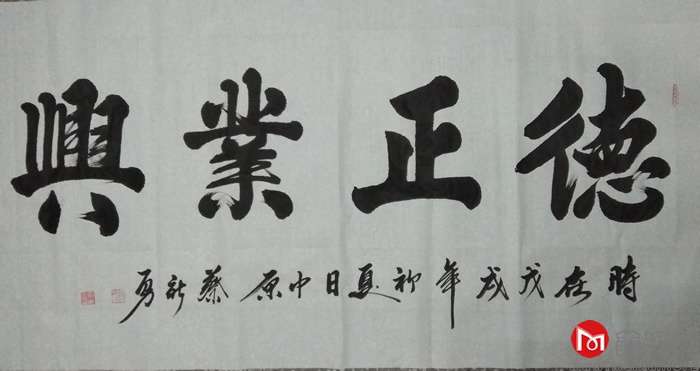 德正業興
時在戊戌年初夏日中原蔡新勇